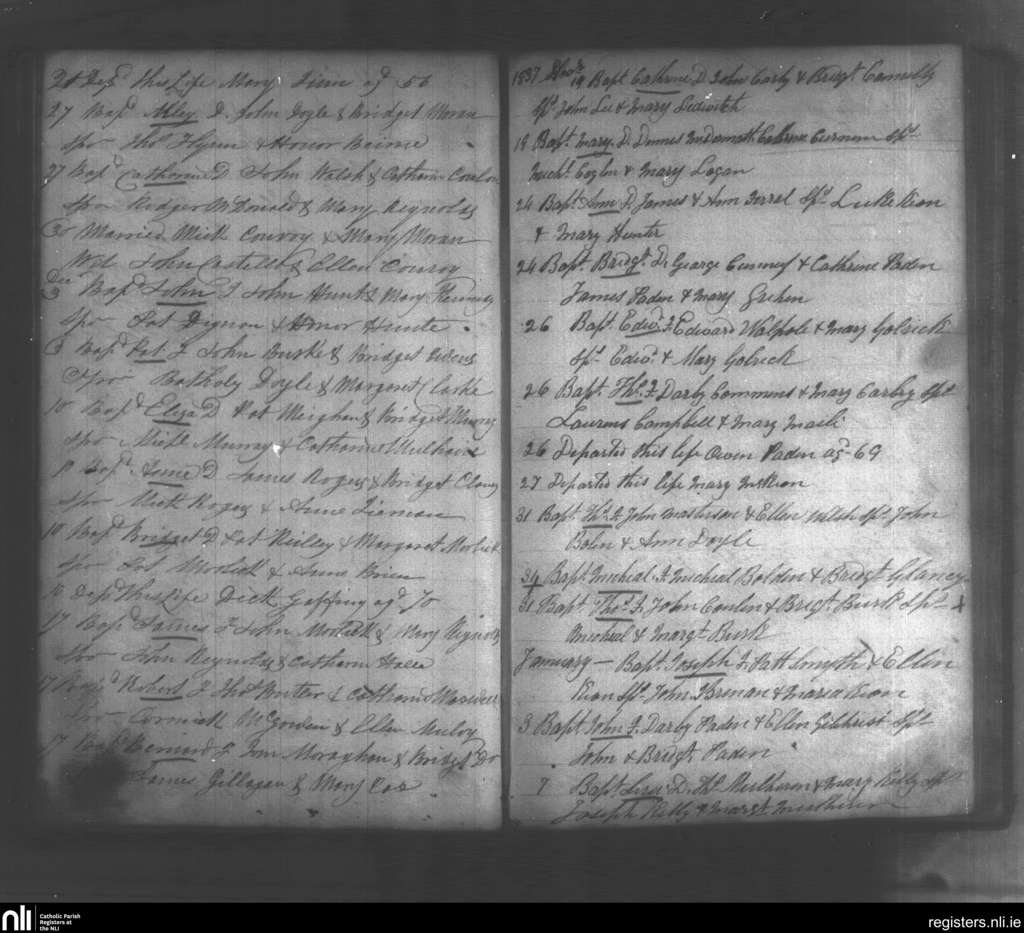 20 Dep.d this Life Mary ag.d 56
27 Bap.d D. John Doyle & Bridget Moran
Spo.r Tho.s Flynn & Honor Beirne
27 Bap.d Catharine D John Walsh & Catharin
Spo.r Rodger McDonald & Mary Reynolds
30 Married Mick Conroy & Mary Moran
Wit. John Costello & Ellen Conroy
Dec 3 Bap.d John J John Hunt & Mary
Spo.r Pat Dignan & Honor Hunte
3 Bap.d Pat J John Burke & Bridget
Spo.r Bartholy Doyle & Margaret Clarke
10 Bap.d Eliza D Pat Meighan & Bridget Murry
Spo.r Murray & Catharine
10 Bap.d Anne D James Rogers & Bridget
Spo.r Mick Rogers & Anne
10 Bap.d Bridget D Pat Reilley & Margaret
Spo.r Pat & Anne Brien
10 Dep.d this Life Dick Gaffney ag.d 70
17 Bap.d James J John & Mary Reynolds
Spo.r John Reynolds & Catharin
17 Bap.d Robert J Tho.s Hunter & Catharine Maxwell
Spo.r Cormick McGowen & Ellen Muloy
17 Bap.d Bernard J Tom Monaghan & Bridget Do
James Gillegan & Mary Cox
1837 Dec.r 19 Bapt. Cathrine D. John Carly & Bridgt Connolly
Sp.s John Lee & Mary Ledwitch
19 Bapt. Mary. D. Dennis McDermott Cathrine Curneen Sp.s
Micht. Coglin & Mary Logan
24 Bapt. Ann D. James & Ann Farrel Sp.s Luke Kean
& Mary Hunter
24 Bapt. Bridgt. D. George & Cathrine Paden
James Paden & Mary Grehen
26 Bapt. Edwd. J. Edward Walpole & Mary Golrick
Sp.s Edwd. & Mary Golrick
26 Bapt. Tho.s J. Darby Commons & Mary Carley Sp.s
Laurens Campbell & Mary
26 Departed this life Owen Paden ag- 69
27 Departed this life Mary McKeon
31 Bapt. Tho.s J. John & Ellen Welsh Sp.s John
Bolin & Ann Doyle
31 Bapt. Micheal J. Micheal Bolden & Bridgt Glancy
31 Bapt. Tho.s J. John Conlin & Bridgt. Burk Sp.s
Micheal & Margt Burk
January — Bapt. Joseph J. Patt Smyth & Ellin
Kean Sp.s John Brenan & Maria Kean
3 Bapt John J. Darby Paden & Ellen Gilchrist Sp.s
John & Bridgt Paden
7 Bapt. D. Tho.s Mulheron & Mary Kelly Sp.s
Joseph Kelly & Margt.
nli
Catholic Parish
Registers at
the NLI
registers.nli.ie